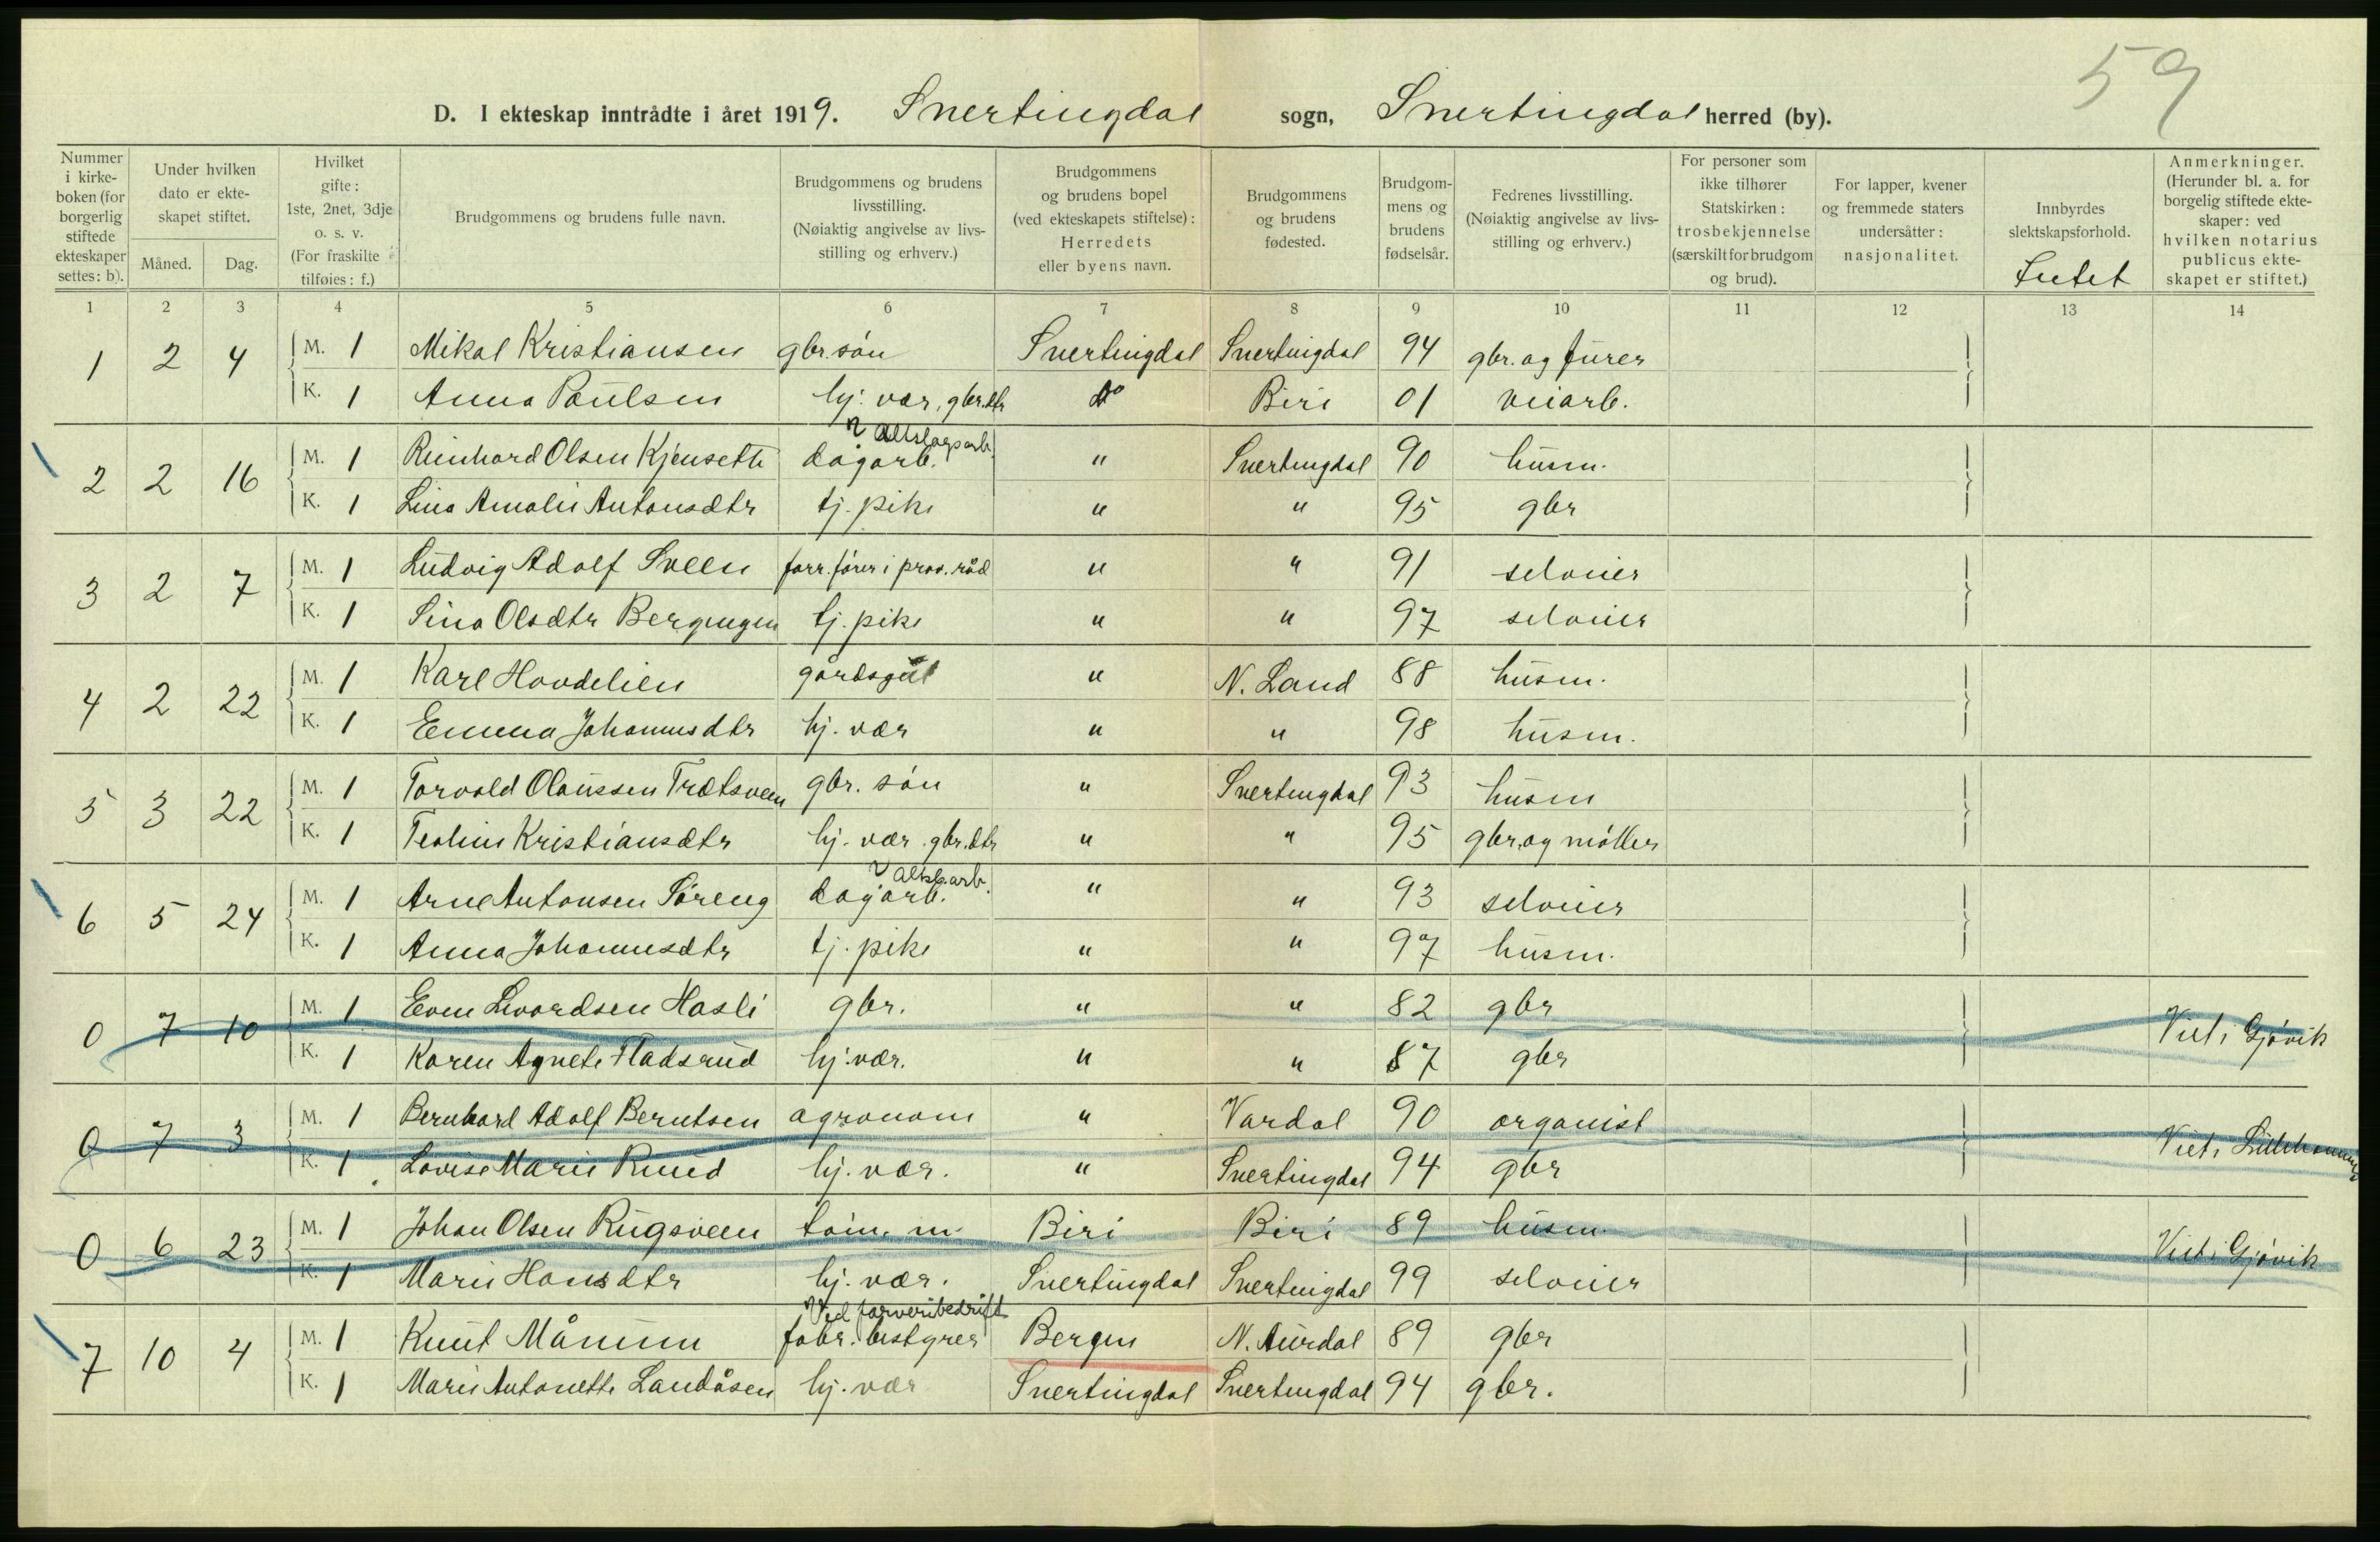 59
D. I ekteskap inntrådte i året 1919. Snertingdal sogn, Snertingdal herred (by).
Nummer i kirkeboken (for borgerlig stiftede ekteskaper settes: b).
Under hvilken dato er ekteskapet stiftet.
Måned. Dag.
Hvilket gifte: 1ste, 2net, 3dje o. s. v. (For fraskilte tilføies: f.)
Brudgommens og brudens fulle navn.
Brudgommens og brudens livsstilling. (Nøiaktig angivelse av livsstilling og erhverv.)
Brudgommens og brudens bopel (ved ekteskapets stiftelse): Herredets eller byens navn.
Brudgommens og brudens fødested.
Brudgommens og brudens fødselsår.
Fedrenes livsstilling. (Nøiaktig angivelse av livsstilling og erhverv.)
For personer som ikke tilhører Statskirken: trosbekjennelse (særskilt for brudgom og brud).
For lapper, kvener og fremmede staters undersåtter: nasjonalitet.
Innbyrdes slektskapsforhold. Intet
Anmerkninger. (Herunder bl. a. for borgelig stiftede ekteskaper: ved hvilken notarius publicus ekteskapet er stiftet.)
1 2 3 4 5 6 7 8 9 10 11 12 13 14
1 2 4 M. 1 Mikal Kristiansen gbr. søn Snertingdal Snertingdal 94 gbr. og furer
K. 1 Anna Paulsen hj. vær, gbr.dtr do Biri 01 veiarb.
2 2 16 M. 1 Reinhard Olsen Kjensette dagarb. altslagsarb. " Snertingdal 90 husm.
K. 1 Lina Amalie Antonsdtr tj. pike " " 95 gbr
3 2 7 M. 1 Ludvig Adolf Sveen forr. fører i prov. råd " " 91 selveier
K. 1 Sina Olsdtr Bergengen tj. pike " " 97 selveier
4 2 22 M. 1 Karl Hovdelien gårdsgut " N. Land 88 husm.
K. 1 Emma Johannesdtr hj. vær " " 98 husm.
5 3 22 M. 1 Torvald Olaussen Trætsveen gbr. søn " Snertingdal 93 husm
K. 1 Teoline Kristiansdtr hj. vær. gbr. dtr " " 95 gbr. og møller
6 5 24 M. 1 Arne Antonsen Søreng dagarb. altsl. arb. " " 93 selveier
K. 1 Anna Johannesdtr tj. pike " " 97 husm.
0 7 10 M. 1 Even Levordsen Hasli gbr. " " 82 gbr Viet i Gjøvik
K. 1 Karen Agnete Fladsrud hj. vær. " " 87 gbr
0 7 3 M. 1 Bernhard Adolf Berntsen agronom " Vardal 90 organist Viet i Lillehammer
K. 1 Lovise Marie Ruud hj. vær. " Snertingdal 94 gbr
0 6 23 M. 1 Johan Olsen Rugsveen tøm. m. Biri Biri 89 husm. Viet i Gjøvik
K. 1 Marie Hansdtr hj. vær. Snertingdal Snertingdal 99 selveier
7 10 4 M. 1 Knut Månum fabr. bestyrer Ved farveribedrift Bergen N. Aurdal 89 gbr
K. 1 Marie Antonette Landåsen hj. vær Snertingdal Snertingdal 94 gbr.